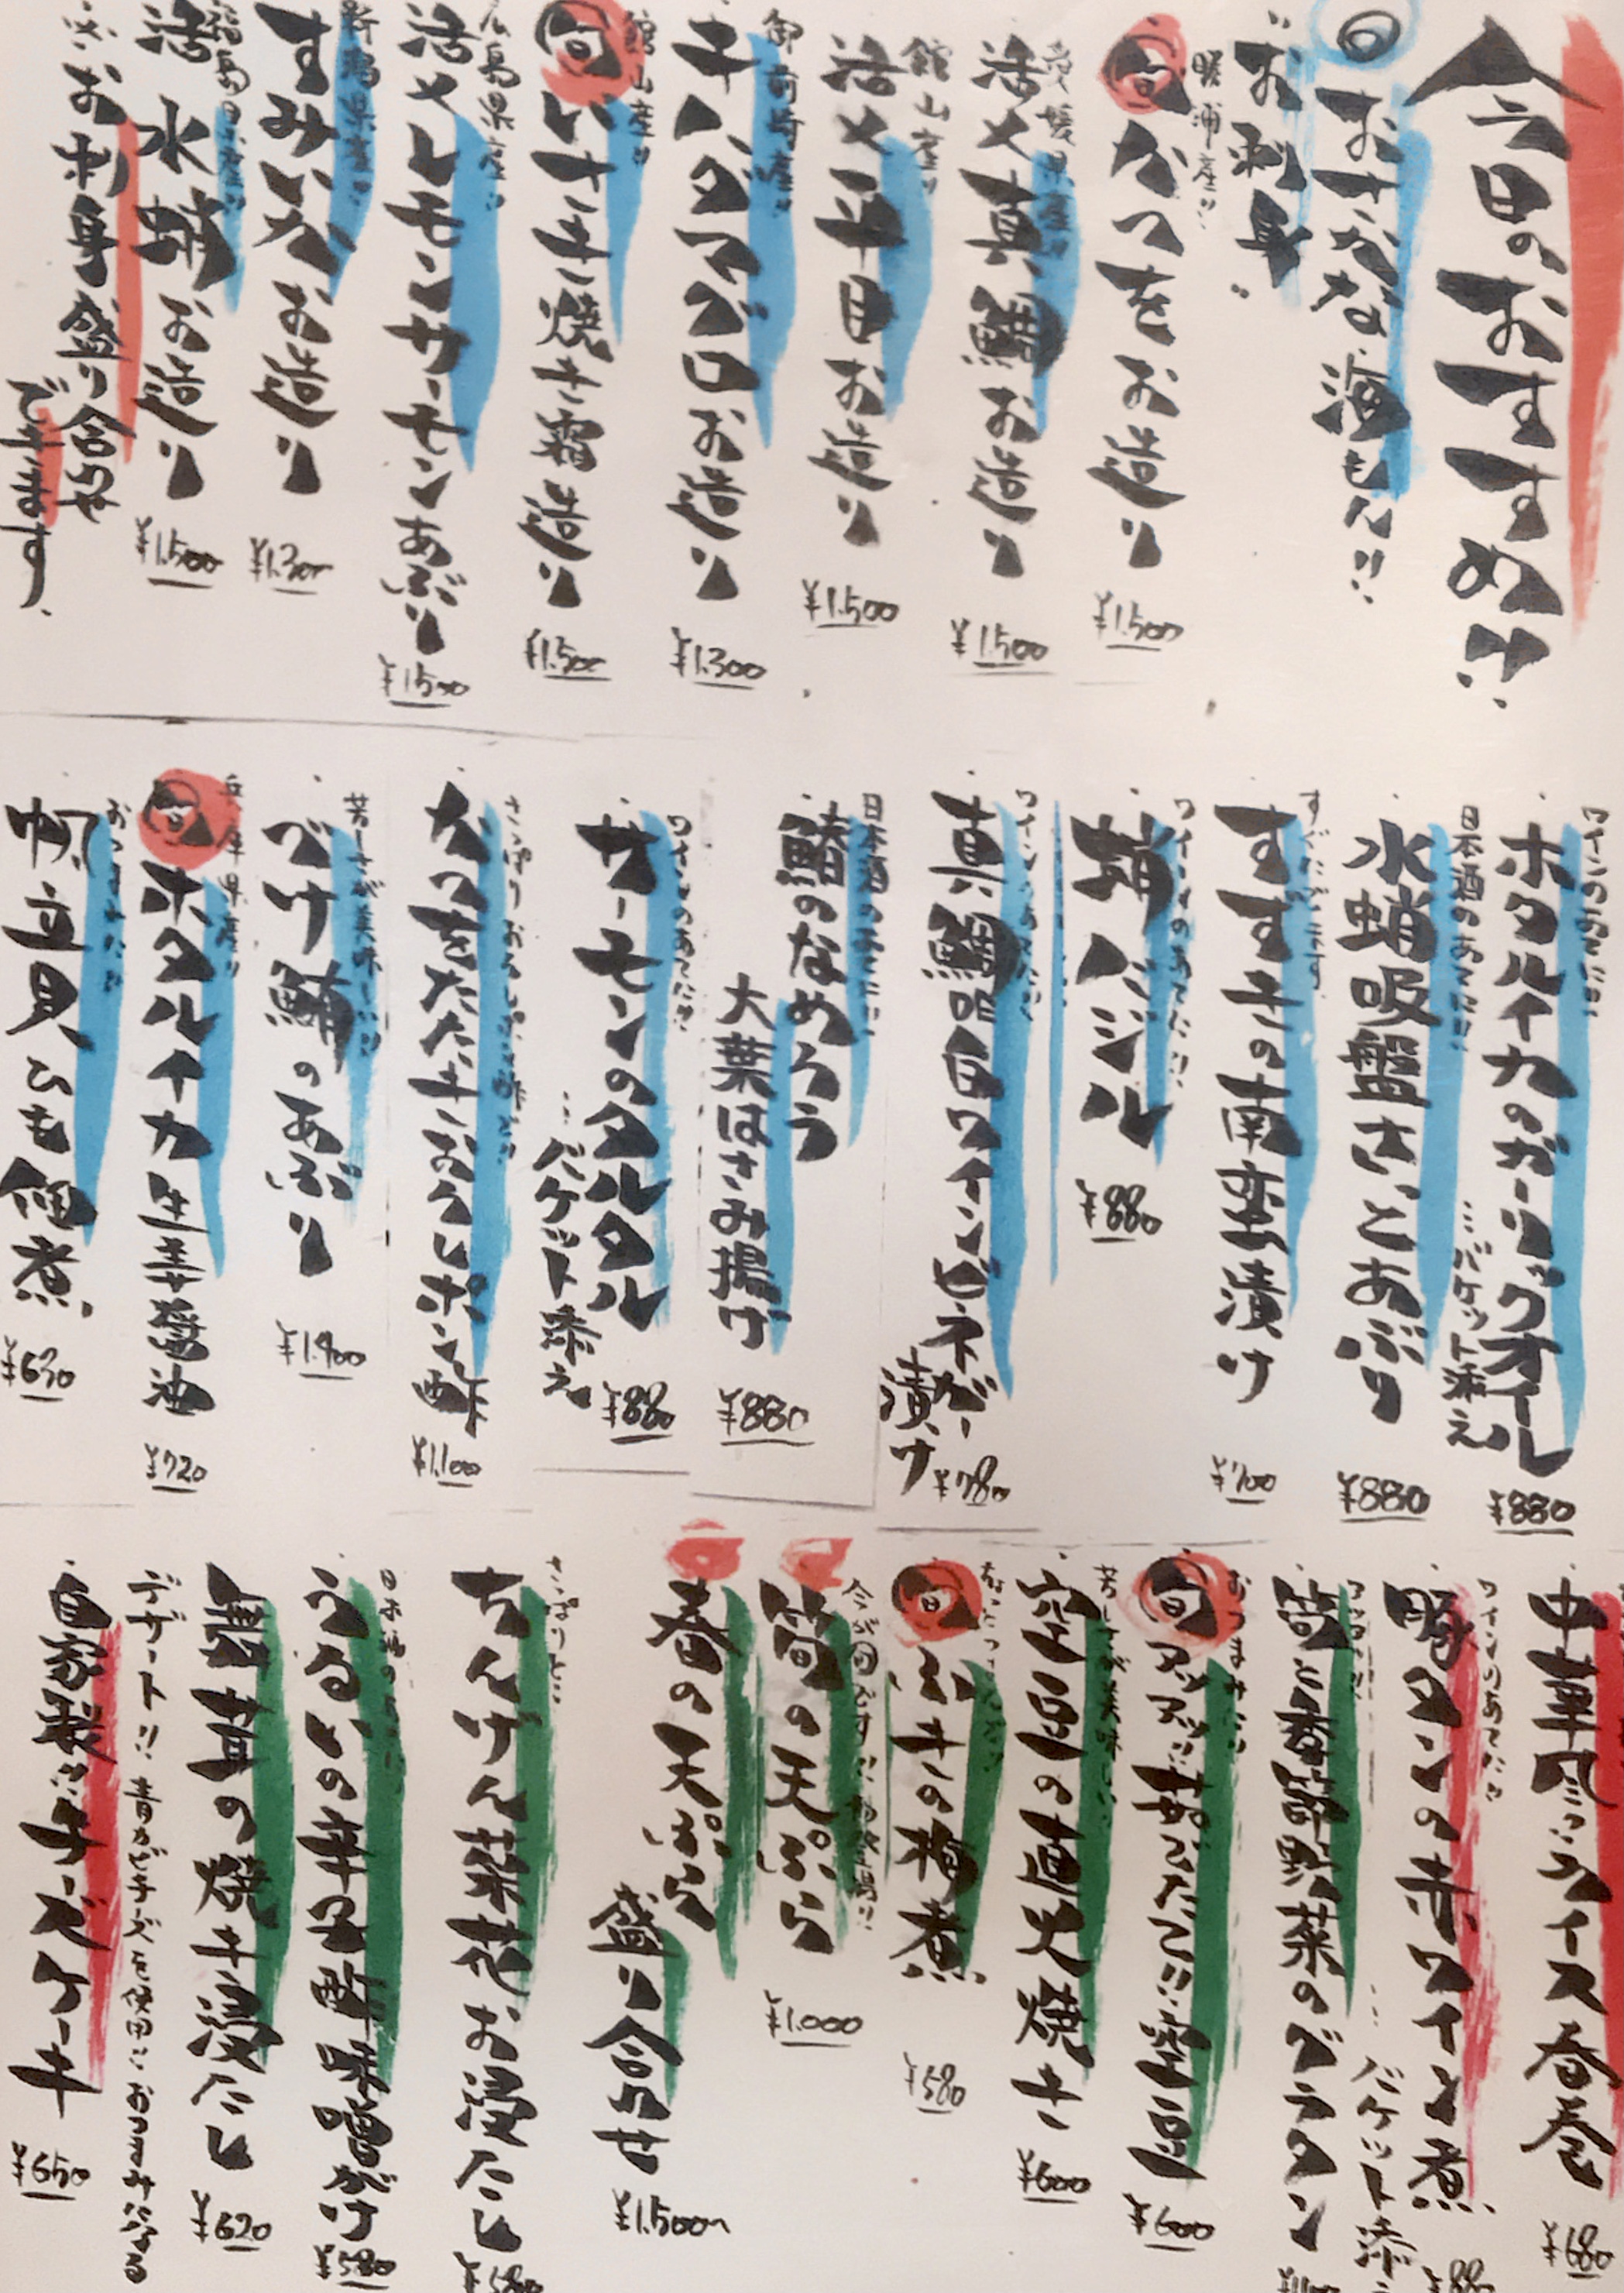 今日のおすすめ!!
おさかな海もん!!
"お刺身"
勝浦産!!
旬 かつをお造り
¥1.500
愛媛県産!!
活〆真鯛お造り
¥1.500
館山産!!
活〆平目お造り
¥1.500
御前崎産!!
キハダマグロお造り
¥1.300
館山産!!
旬 いさき焼き霜造り
¥1.500
広島県産!!
活〆レモンサーモンあぶり
¥1500
新潟県産!!
すみいかお造り
¥1.300
福島県産!!
活 水蛸お造り
¥1.500
お刺身盛り合わせ
できます。
ワインのあてに!!
ホタルイカのガーリックオイル
…バケット添え
¥880
日本酒のあてに!!
水蛸吸盤さっとあぶり
¥880
すぐにだせます
すずきの南蛮漬け
¥700
ワインのあてに!!
蛸バジル
¥880
ワインのあてに!!
真鯛白ワインビネガー漬け
¥780
日本酒のあてに!!
鯵のなめろう
大葉はさみ揚げ
¥880
ワインのあてに!!
サーモンのタルタル
…バケット添え
¥880
さっぱりおろしポン酢で!!
かつをたたきおろしポン酢
¥1.100
芳ばしさが美味しい!!
づけ鮪のあぶり
¥1.400
兵庫県産!!
旬 ホタルイカ生姜醤油
¥720
おつまみに!!
帆立貝ひも佃煮
¥630
中華風ライス春巻
¥680
ワインのあてに!!
豚タンの赤ワイン煮
…バケット添え
¥880
筍と春野菜のグラタン
おつまみに!!
旬 アツアツ!!茹でたて!!空豆
¥600
芳ばしさが美味しい!!
空豆の直火焼き
¥600
旬 ふきの梅煮
¥580
今が旬です!!
筍の天ぷら
¥1.000
春の天ぷら
盛り合わせ
¥1.500〜
さっぱりと!!
ちんげん菜花お浸たし
¥580
日本酒のあてに!!
うるいの辛子酢味噌がけ
¥580
萵苣の焼き浸たし
¥620
デザート!! 青カビチーズを使用 おつまみになる
自家製!!チーズケーキ
¥650